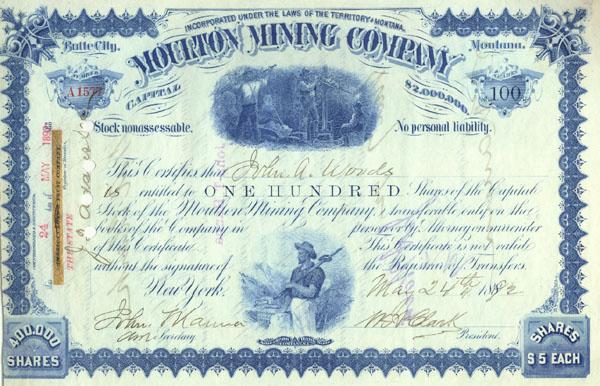 INCORPORATED UNDER THE LAWS OF THE TERRITORY OF MONTANA.
Butte City, Montana.
MOULTON MINING COMPANY
CAPITAL $2,000,000
A1577
SHARES
100
Stock nonassessable. No personal liability.
This Certifies that John A. Woods
is entitled to ONE HUNDRED Shares of the Capital
Stock of the Moulton Mining Company, transferable only on the
books of the Company in person or by Attorney on surrender
of this Certificate. This Certificate is not valid
without the signature of the Registrar of Transfers.
New York, May 24th 1882
Secretary. W. A. Clark President.
400,000 SHARES
SHARES $5 EACH
24 MAY
THE STATE